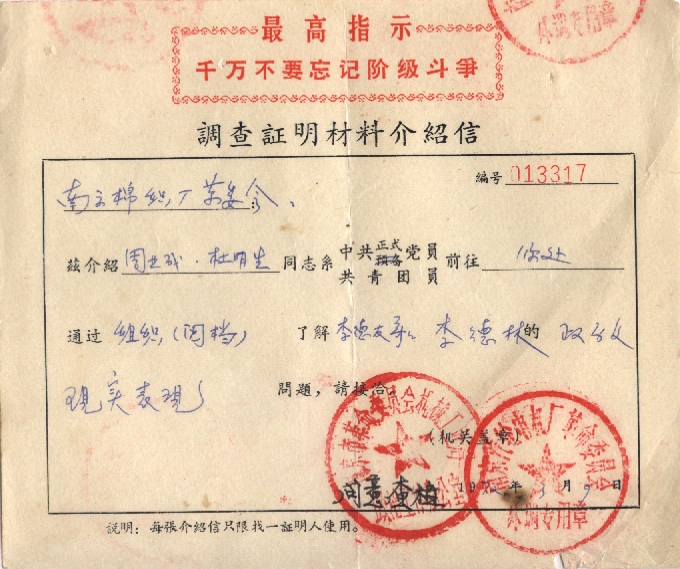 最高指示
千万不要忘记阶级斗争
調查証明材料介紹信
编号 013317
南京棉织厂革委会:
兹介紹 周 杜明生 同志系 中共正式預备党員 共青团員 前往 你处
通过 组织(阅档) 了解 李德友哥: 李德林的 政历及
现实表现 問題,請接洽。
(机关盖章)
同意查档
197 年 3 月 9 日
革命委員会
专用章
說明:每張介紹信只限找一証明人使用。